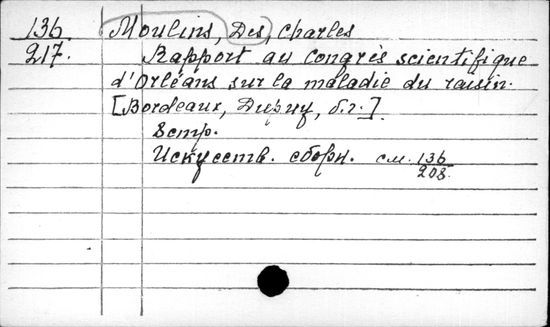 136. Moulins, Des, Charles
217. Rapport au Congrès scientifique
d'Orléans sur la maladie du raisin.
[Bordeaux, Dupuy, б.г.]
8 стр.
Искусств. сборн. см. 136/208.